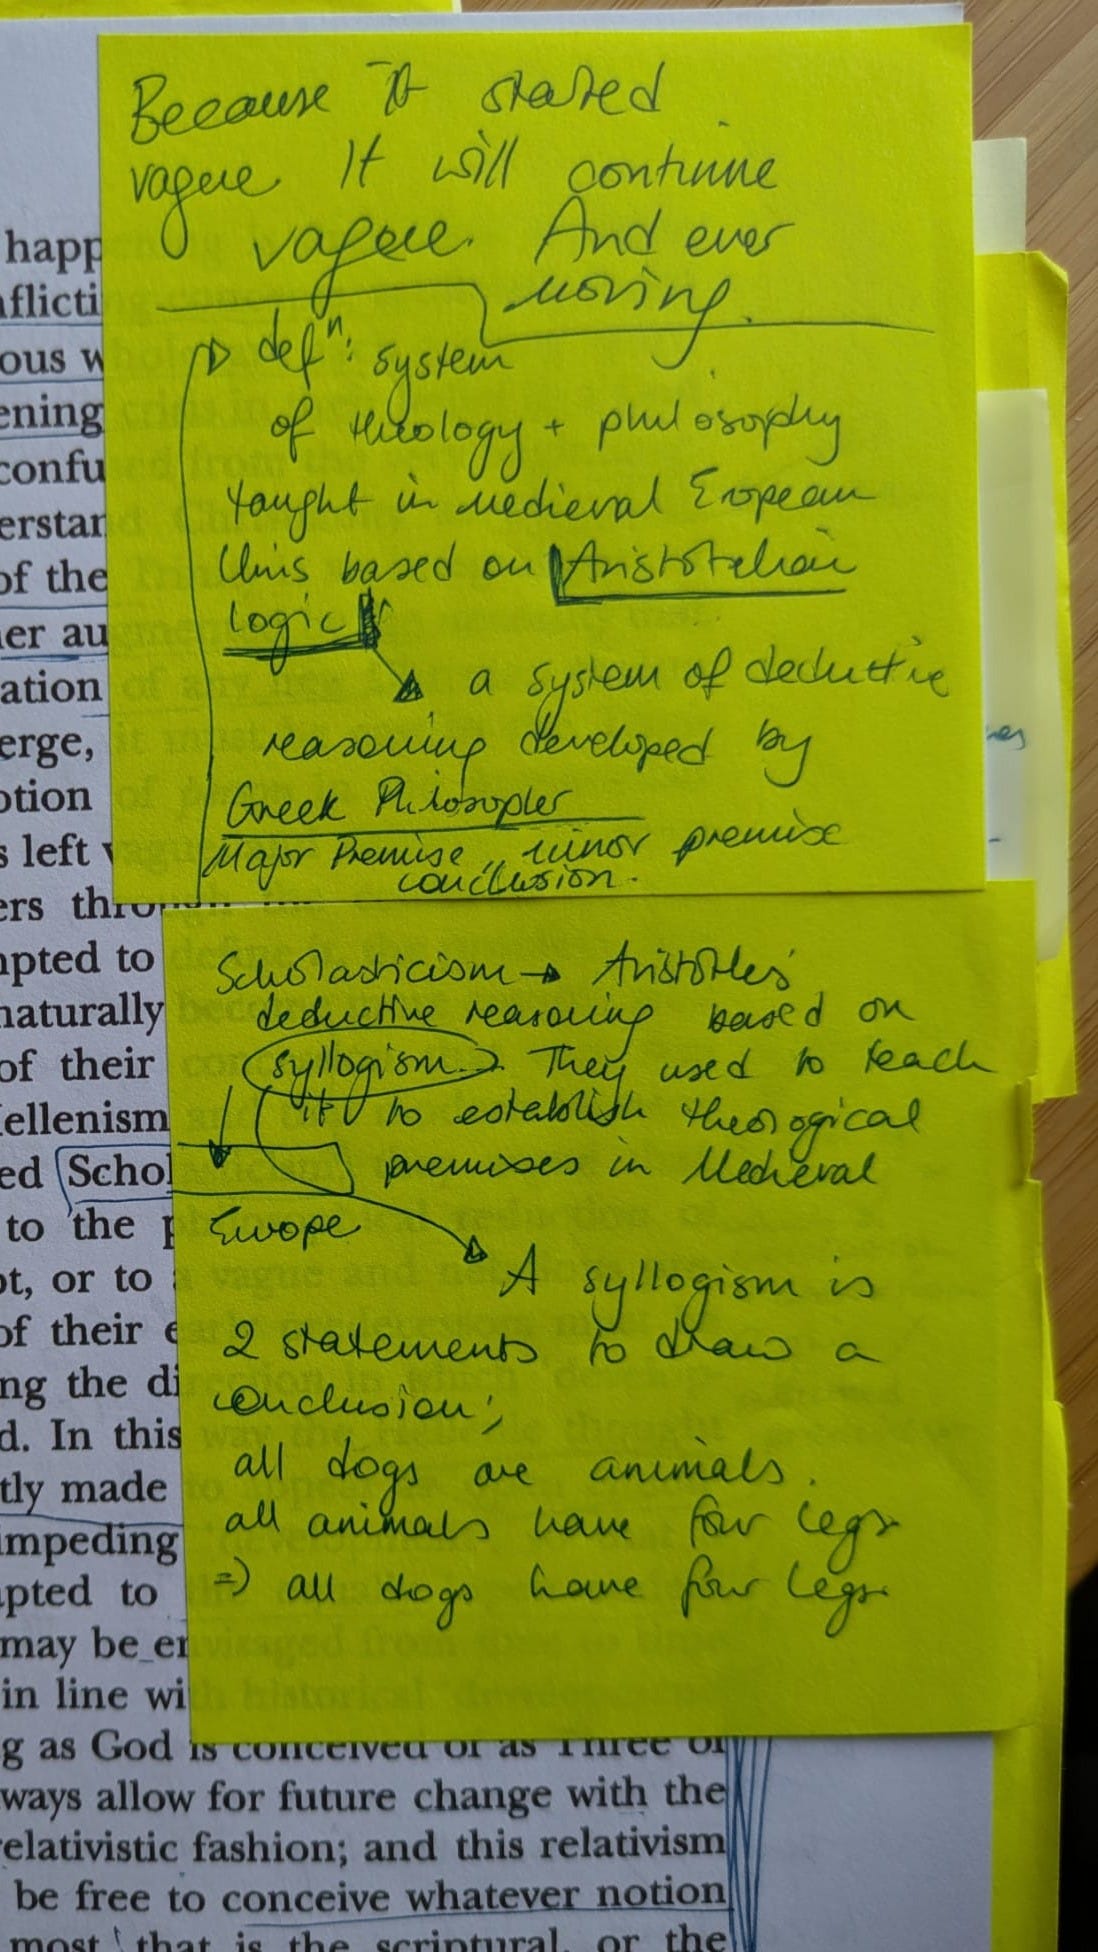 Because it stated
vague It will continue
vague. And ever
moving.
defn: system
of theology + philosophy
taught in Medieval Eropean
Unis based on Aristotelian
logic
a system of deductive
reasoning developed by
Greek Philosopler
Major Premise, minor premise
conclusion.
Scholasticism → Aristotles'
deductive reasoning based on
syllogism. They used to teach
it to establish theological
premises in Medieval
Europe
A syllogism is
2 statements to draw a
conclusion;
all dogs are animals.
all animals have four legs
=) all dogs have four legs
happ
nflicti
ous w
ening
confu
erstan
of the
er au
ation
erge,
otion
s left v
ers through
mpted to
naturally
of their
Hellenism
ed Schol
to the p
ot, or to
of their e
ng the di
d. In this
tly made
impeding
npted to
may be en
in line wi
g as God is conceived of as Three or
ways allow for future change with the
relativistic fashion; and this relativism
be free to conceive whatever notion
most, that is the scriptural, or the